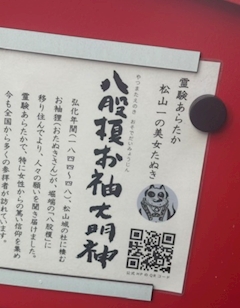 霊験あらたか
松山一の美女たぬき
やつまたえのき おそでだいみょうじん
八股榎お袖大明神
弘化年間(一八四四〜四八)、松山城の杜に棲む
お袖狸(おたぬきさん)が、堀端の「八股榎」に
移り住んでより、人々の願いを聞き届けました。
霊験あらたかで、特に女性からの篤い信仰を集め
今も全国から多くの参拝者が訪れています。